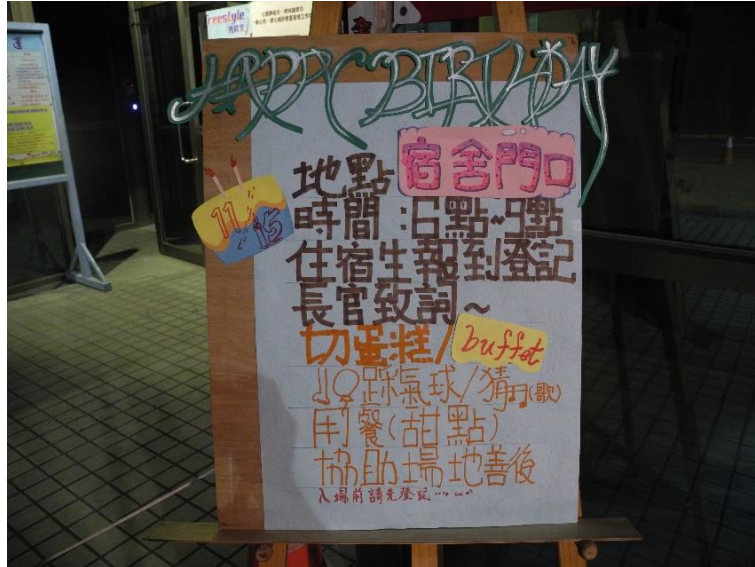 freestyle
HAPPY BIRTHDAY
地點 宿舍門口
11/15
時間:6點~9點
住宿生報到登記
長官致詞~
切蛋糕/buffet
踩氣球/猜(歌)
用餐(甜點)
協助場地善後
入場前請先登記……